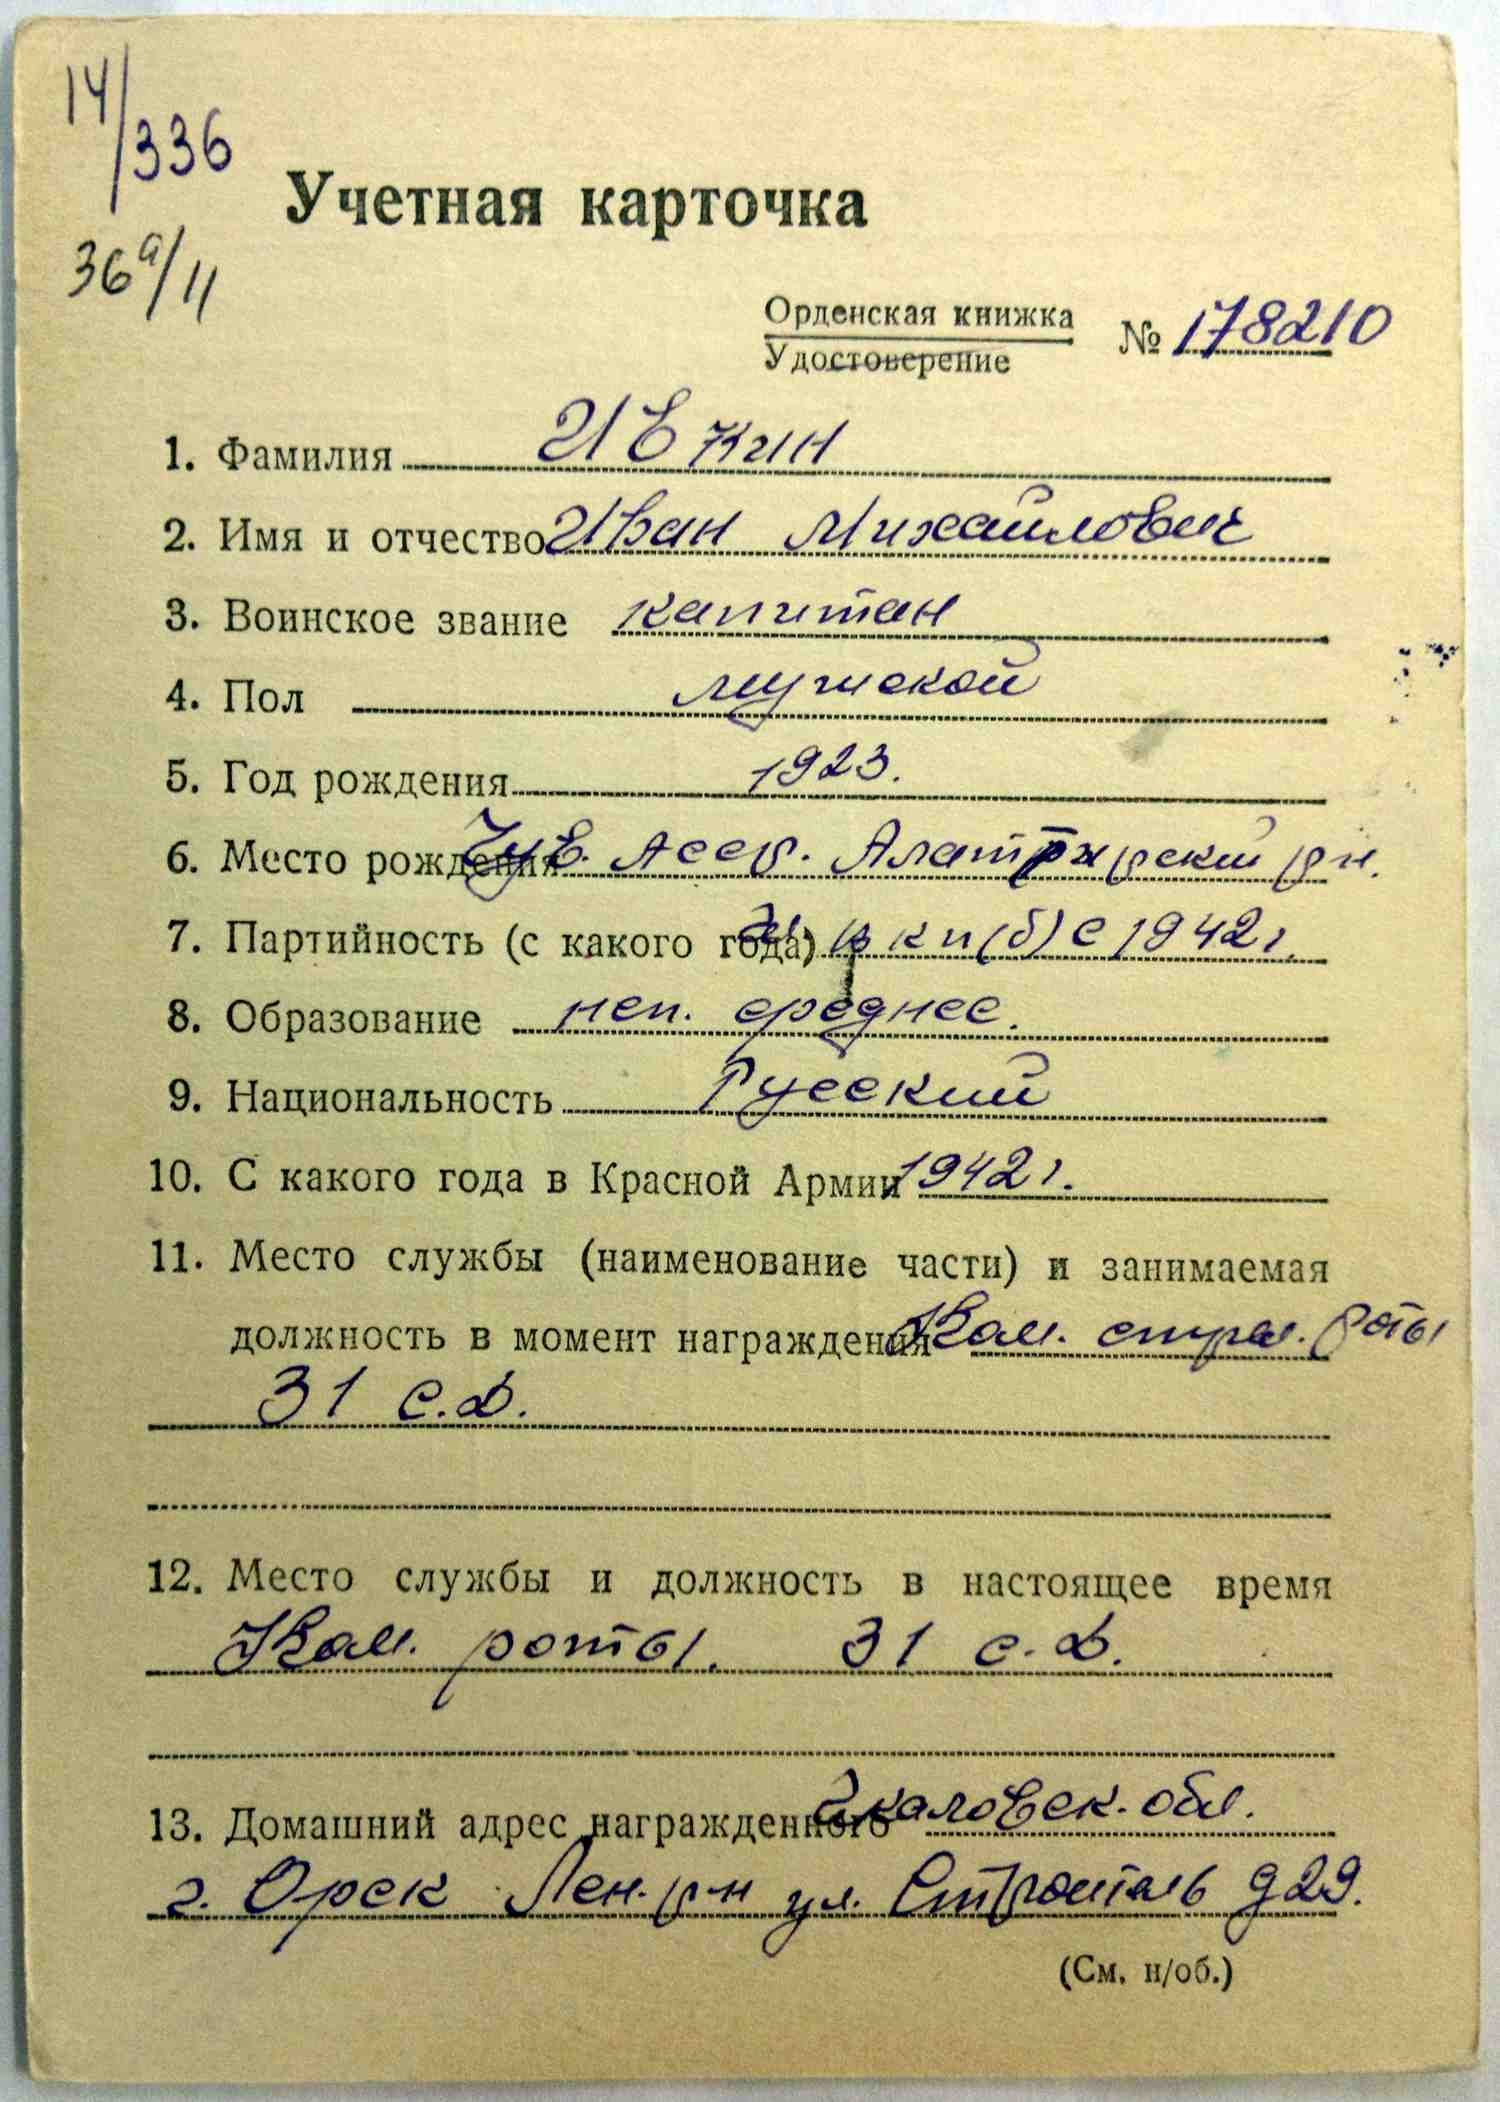 14/336
Учетная карточка
36а/11
Орденская книжка
Удостоверение
№ 178210
1. Фамилия Ивкин
2. Имя и отчество Иван Михайлович
3. Воинское звание капитан
4. Пол мужской
5. Год рождения 1923.
6. Место рождения Чув. Асср. Алатырский р-н.
7. Партийность (с какого года) вкп(б) с 1942 г.
8. Образование неп. среднее.
9. Национальность Русский
10. С какого года в Красной Армии 1942 г.
11. Место службы (наименование части) и занимаемая
должность в момент награждения Ком. стрел. роты
31 с.д.
12. Место службы и должность в настоящее время
Ком. роты. 31 с.д.
13. Домашний адрес награжденного Чкаловск. обл.
г. Орск Лен. р-н ул. Строитель д 29.
(См. н/об.)